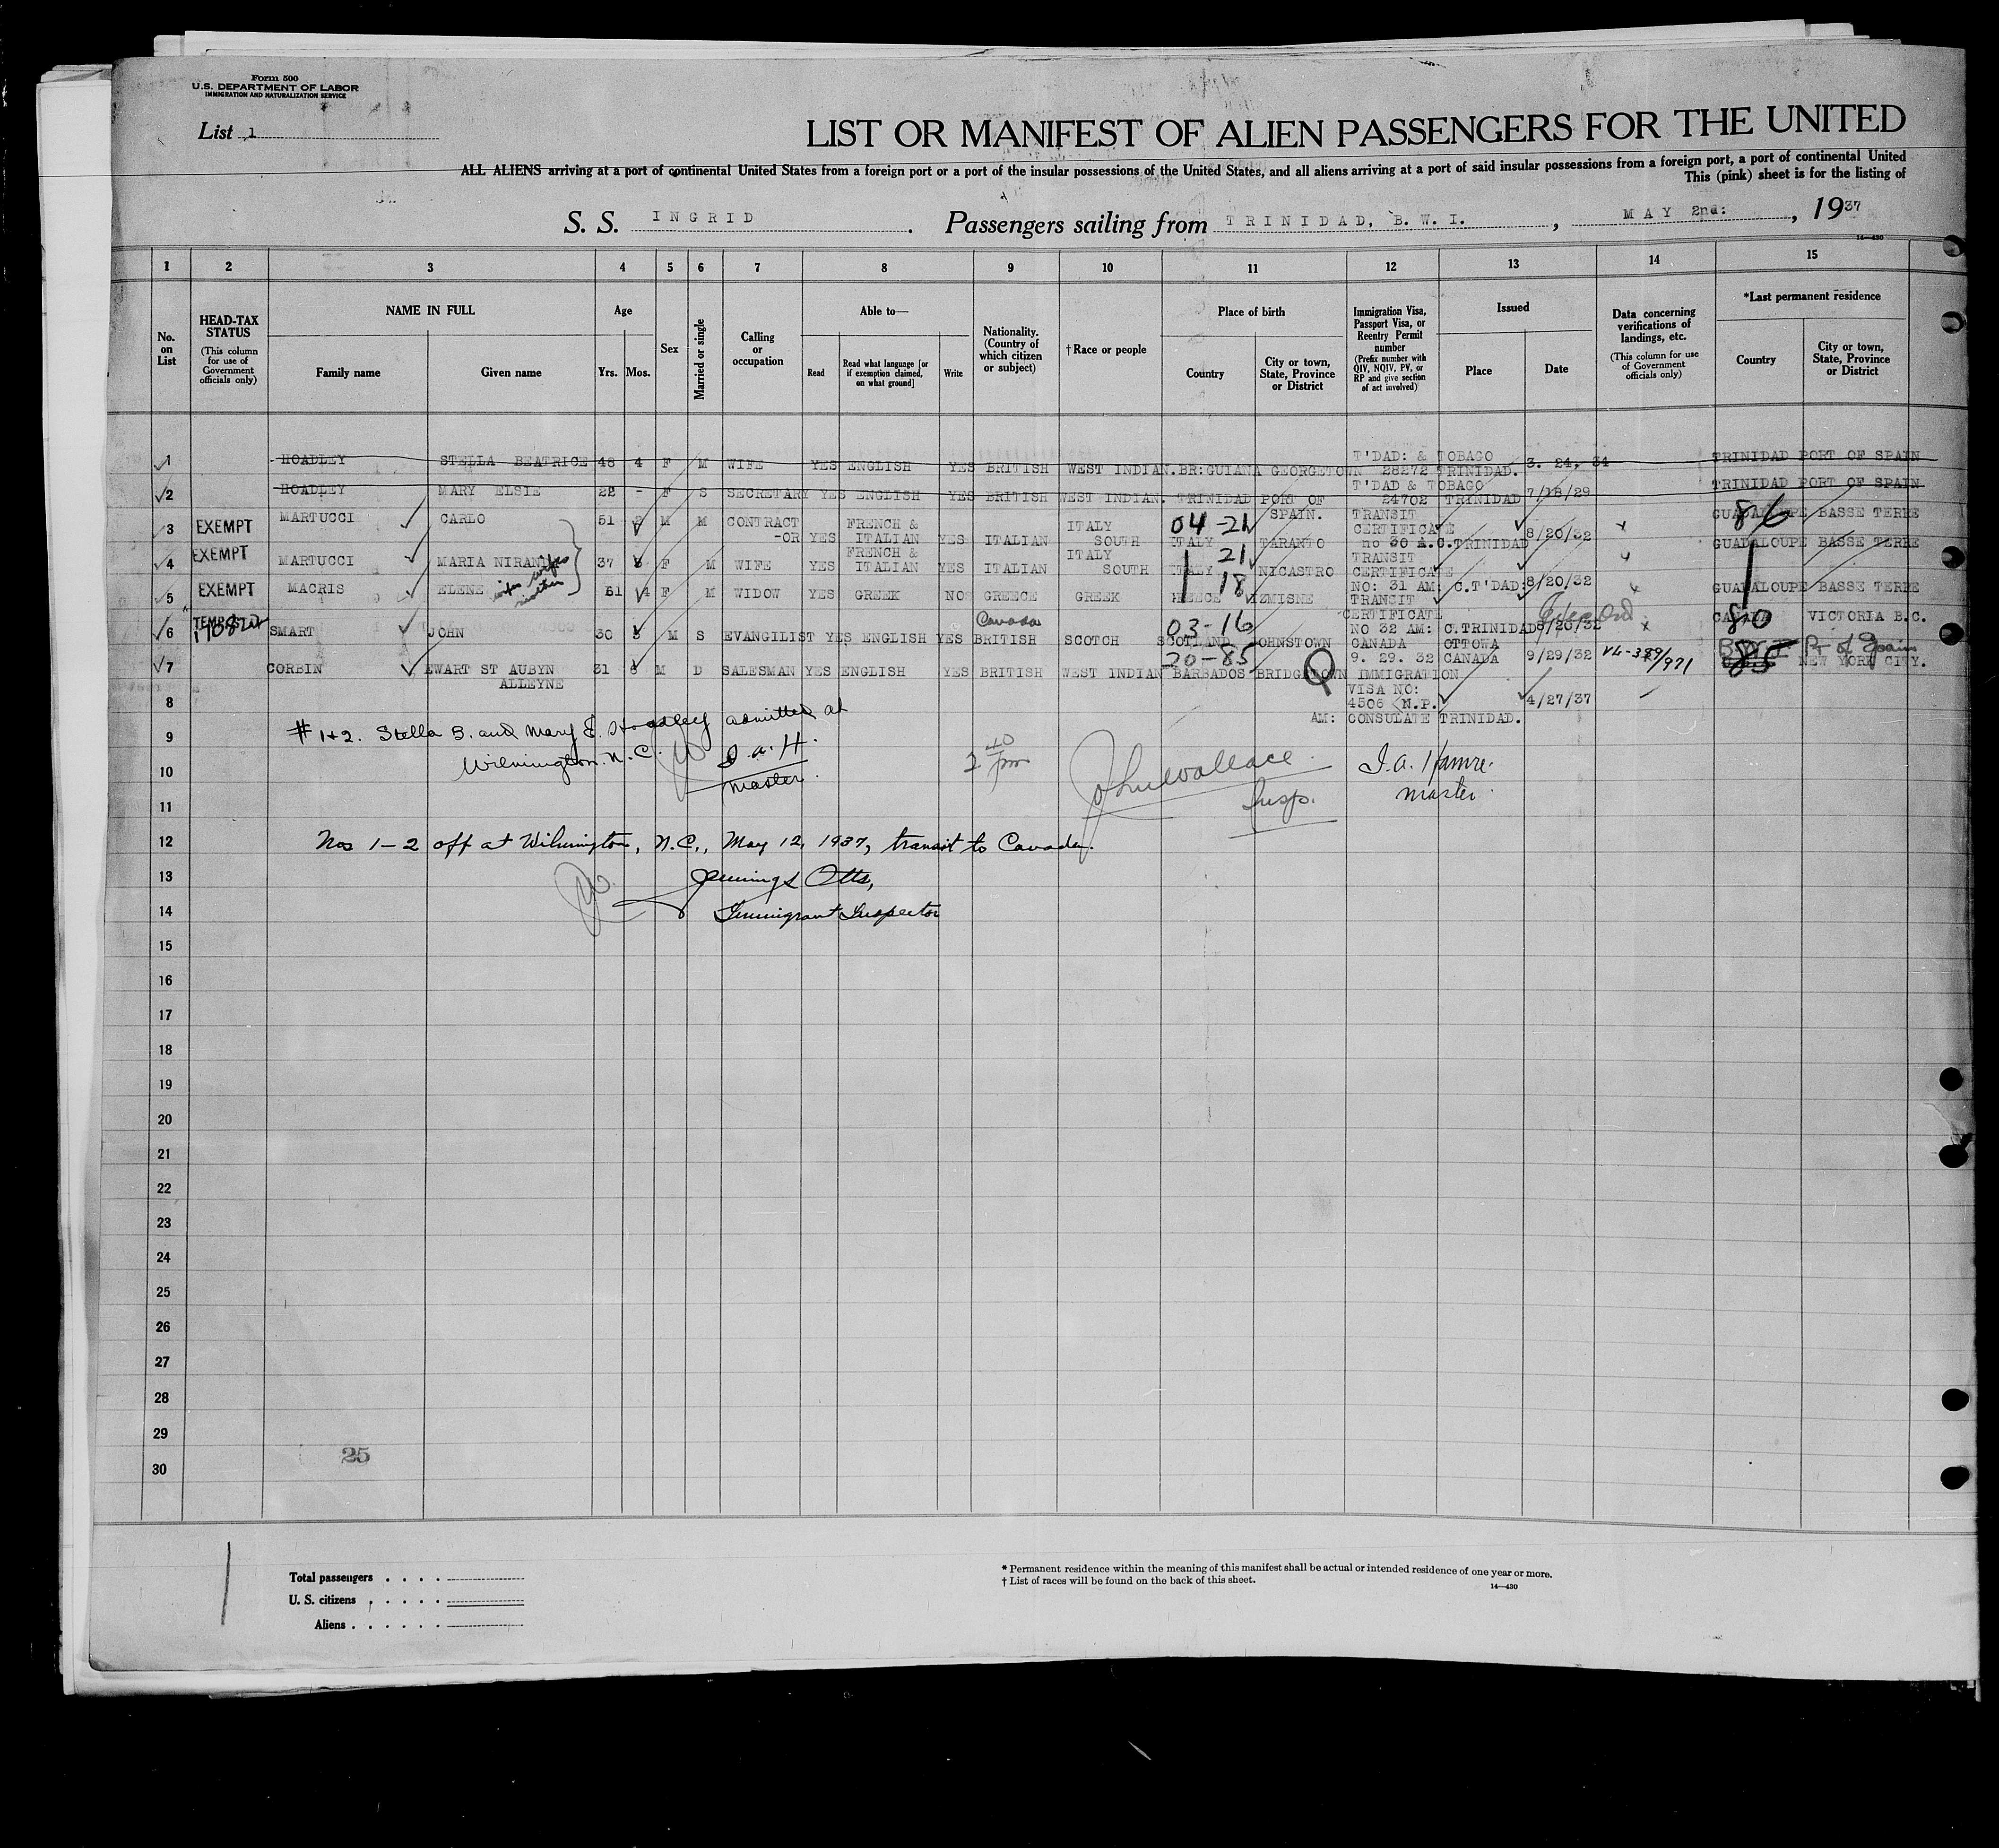 Form 500
U.S. DEPARTMENT OF LABOR
IMMIGRATION AND NATURALIZATION SERVICE
List 1
LIST OR MANIFEST OF ALIEN PASSENGERS FOR THE UNITED
ALL ALIENS arriving at a port of continental United States from a foreign port or a port of the insular possessions of the United States, and all aliens arriving at a port of said insular possessions from a foreign port, a port of continental United
This (pink) sheet is for the listing of
S. S. INGRID . Passengers sailing from TRINIDAD, B. W. I. , MAY 2nd: , 1937
14—430
1 2 3 4 5 6 7 8 9 10 11 12 13 14 15
No. on List
HEAD-TAX STATUS (This column for use of Government officials only)
NAME IN FULL
Family name Given name
Age
Yrs. Mos.
Sex
Married or single
Calling or occupation
Able to—
Read Read what language [or if exemption claimed, on what ground] Write
Nationality. (Country of which citizen or subject)
†Race or people
Place of birth
Country City or town, State, Province or District
Immigration Visa, Passport Visa, or Reentry Permit number (Prefix number with QIV, NQIV, PV, or RP and give section of act involved)
Issued
Place Date
Data concerning verifications of landings, etc. (This column for use of Government officials only)
*Last permanent residence
Country City or town, State, Province or District
T'DAD: & TOBAGO
1 HOADLEY STELLA BEATRICE 48 4 F M WIFE YES ENGLISH YES BRITISH WEST INDIAN. BR: GUIANA GEORGETOWN 28272 TRINIDAD. 3. 24, 34 TRINIDAD PORT OF SPAIN
T'DAD & TOBAGO
2 HOADLEY MARY ELSIE 22 - F S SECRETARY YES ENGLISH YES BRITISH WEST INDIAN. TRINIDAD PORT OF SPAIN. 24702 TRINIDAD 7/18/29 TRINIDAD PORT OF SPAIN
3 EXEMPT MARTUCCI CARLO 51 M M CONTRACT-OR YES FRENCH & ITALIAN YES ITALIAN ITALY SOUTH 04-21 ITALY TARANTO TRANSIT CERTIFICATE no 30 A.C. TRINIDAD 8/20/32 GUADALOUPE BASSE TERRE 86
4 EXEMPT MARTUCCI MARIA NIRANI wife 37 F M WIFE YES FRENCH & ITALIAN YES ITALIAN ITALY SOUTH 21 ITALY NICASTRO TRANSIT CERTIFICATE NO: 31 AM: C.T'DAD: 8/20/32 GUADALOUPE BASSE TERRE
5 EXEMPT MACRIS ELENE wifes mother 61 4 F M WIDOW YES GREEK NO GREECE GREEK 18 IZMISNE TRANSIT CERTIFICATE NO 32 AM: C.TRINIDAD 8/20/32 GUADALOUPE BASSE TERRE
6 SMART JOHN 30 M S EVANGILIST YES ENGLISH YES BRITISH Canada SCOTCH 03-16 SCOTLAND JOHNSTOWN CANADA 9. 29. 32 OTTOWA CANADA 9/29/32 CANADA VICTORIA B.C. 80
7 CORBIN EWART ST AUBYN ALLEYNE 31 6 M D SALESMAN YES ENGLISH YES BRITISH WEST INDIAN 20-85 BARBADOS BRIDGETOWN Q IMMIGRATION VISA NO: 4506 N.P. 4/27/37 85 Pt of Spain NEW YORK CITY.
8
AM: CONSULATE TRINIDAD.
9 #1+2. Stella B. and Mary E. Hoadley admitted at
Wilmington. N.C. J. a. H.
master.
10
2 40 pm John Wallace Insp.
J. a. Hamre. master.
11
12 Nos 1-2 off at Wilmington, N.C., May 12, 1937, transit to Canada.
13 Jennings Otts,
14 Immigrant Inspector
15
16
17
18
19
20
21
22
23
24
25
26
27
28
29
30
25
Total passengers
U. S. citizens
Aliens
* Permanent residence within the meaning of this manifest shall be actual or intended residence of one year or more.
† List of races will be found on the back of this sheet.
14—430